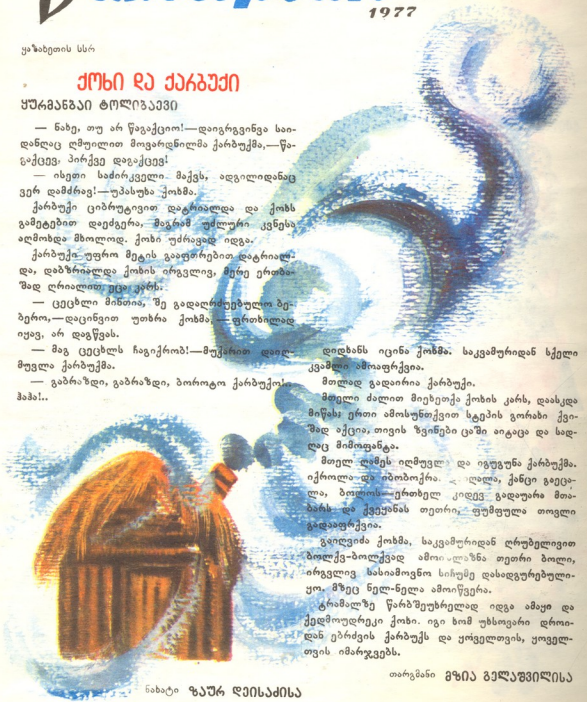 1977
ყაზახეთის სსრ
ქოხი და ქარბუქი
ყურმანბაი ტოლიბაევი
— ნახე, თუ არ წაგაქციო!—დაიგრგვინვა საი-
დანღაც ღმუილით მოვარდნილმა ქარბუქმა,—წა-
გაქცევ, პირქვე დაგაქცევ!
— ისეთი საძირკველი მაქვს, ადგილიდანაც
ვერ დამძრავ!—უპასუხა ქოხმა.
ქარბუქი ციბრუტივით დატრიალდა და ქოხს
გამეტებით დაეძგერა, მაგრამ უძლური კვნესა
აღმოხდა მხოლოდ. ქოხი უძრავად იდგა.
ქარბუქი უფრო მეტის გააფთრებით დატრიალ-
და, დაბზრიალდა ქოხის ირგვლივ, მერე ერთბა-
შად ღრიალით ეცა კარს.
— ცეცხლი მინთია, შე გადაღრძუებულო ბე-
ბერო,—დაცინვით უთხრა ქოხმა,—ფრთხილად
იყავ, არ დაგწვას.
— მაგ ცეცხლს ჩაგიქრობ!—მუქარით დაიღ-
მუვლა ქარბუქმა.
— გაბრაზდი, გაბრაზდი, ბოროტო ქარბუქო!..
ჰაჰა!..
დიდხანს იცინა ქოხმა. საკვამურიდან სქელი
კვამლი ამოაფრქვია.
მთლად გადაირია ქარბუქი.
მთელი ძალით მიეხეთქა ქოხის კარს, დაასკდა
მიწას; ერთი ამოსუნთქვით სტეპის გორახი ქვი-
შად აქცია, თივის ზვინები ცაში აიტაცა და სად-
ღაც მიმოფანტა.
მთელ ღამეს იღმუვლა და იგუგუნა ქარბუქმა.
იქროლა და იბობოქრა. ქანცი გაეცა-
ლა, ბოლოს ერთხელ კიდევ გადაუარა მთა-
ბარს და ქვეყანას თეთრი, ფუმფულა თოვლი
გადააფრქვია.
გაიღვიძა ქოხმა, საკვამურიდან ღრუბელივით
ბოლქვ-ბოლქვად თეთრი ბოლი,
ირგვლივ სასიამოვნო სიჩუმე დასადგურებული-
ყო. მზეც ნელ-ნელა ამოიწვერა.
ტრამალზე წარბშეუხრელად იდგა ამაყი და
ქედმოუდრეკი ქოხი. იგი ხომ უხსოვარი დროი-
დან ებრძვის ქარბუქს და ყოველთვის, ყოველ-
თვის იმარჯვებს.
თარგმანი მზია გელაშვილისა
ნახატი ზაურ დეისაძისა